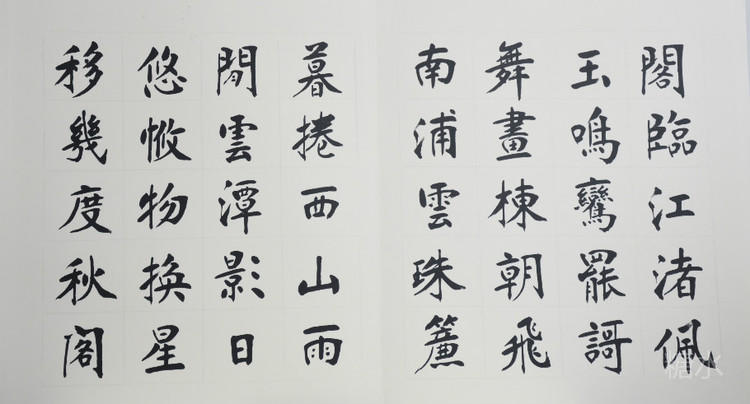 閣臨江渚佩
玉鳴鸞罷謌
舞畫棟朝飛
南浦雲珠簾
暮捲西山雨
閒雲潭影日
悠悠物換星
移幾度秋閣
糖水